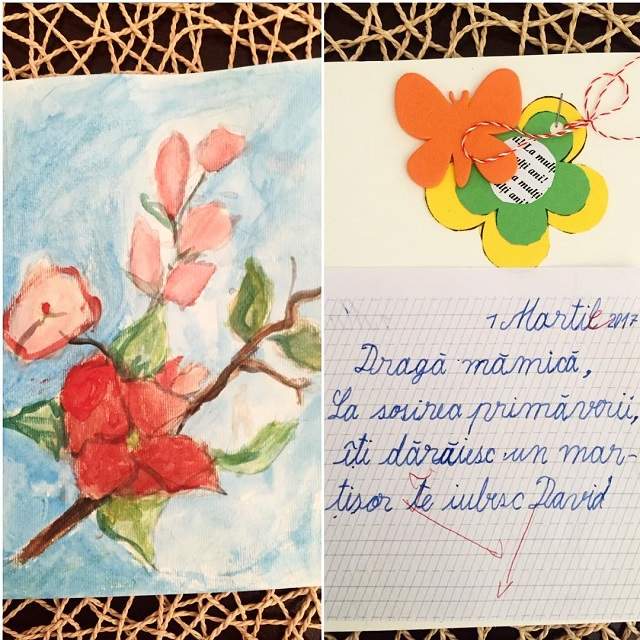 La mulți
ulți ani!
a mulți
lți ani
1 Martie 2017
Dragă mămică,
La sosirea primăverii,
îți dărăiesc un mar-
tișor te iubesc David